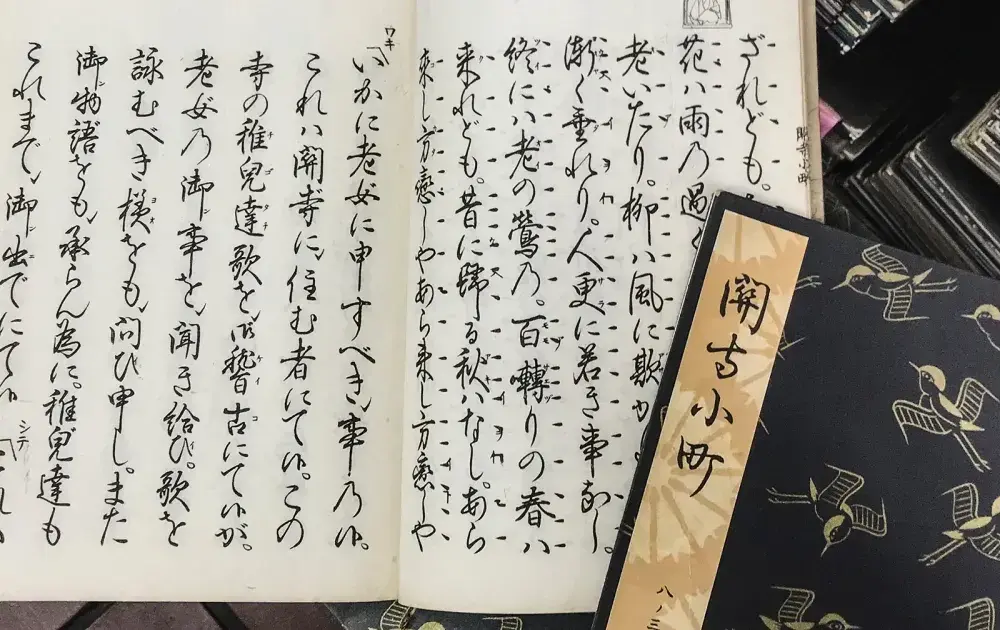 ざれども。
花ハ雨乃過
老いたり。柳ハ風に欺か
漸く垂れり。人更に若き事なし。
終にハ老の鶯乃。百囀りの春ハ
来れども。昔に歸る秋ハなし。あら
来し方戀しやあら来し方戀しや
ワキ
いかに老女に申すべき、事乃候。
これハ關寺に、住む者にて候。この
寺の稚兒達歌を、御稽古にて候が。
老女乃御事を、聞き給ひ。歌を
詠むべき様をも、問ひ申し。また
御物語をも、承らん為に。稚兒達も
これまで、御出でにて候
シテ
關寺小町
關寺小町
八ノ三